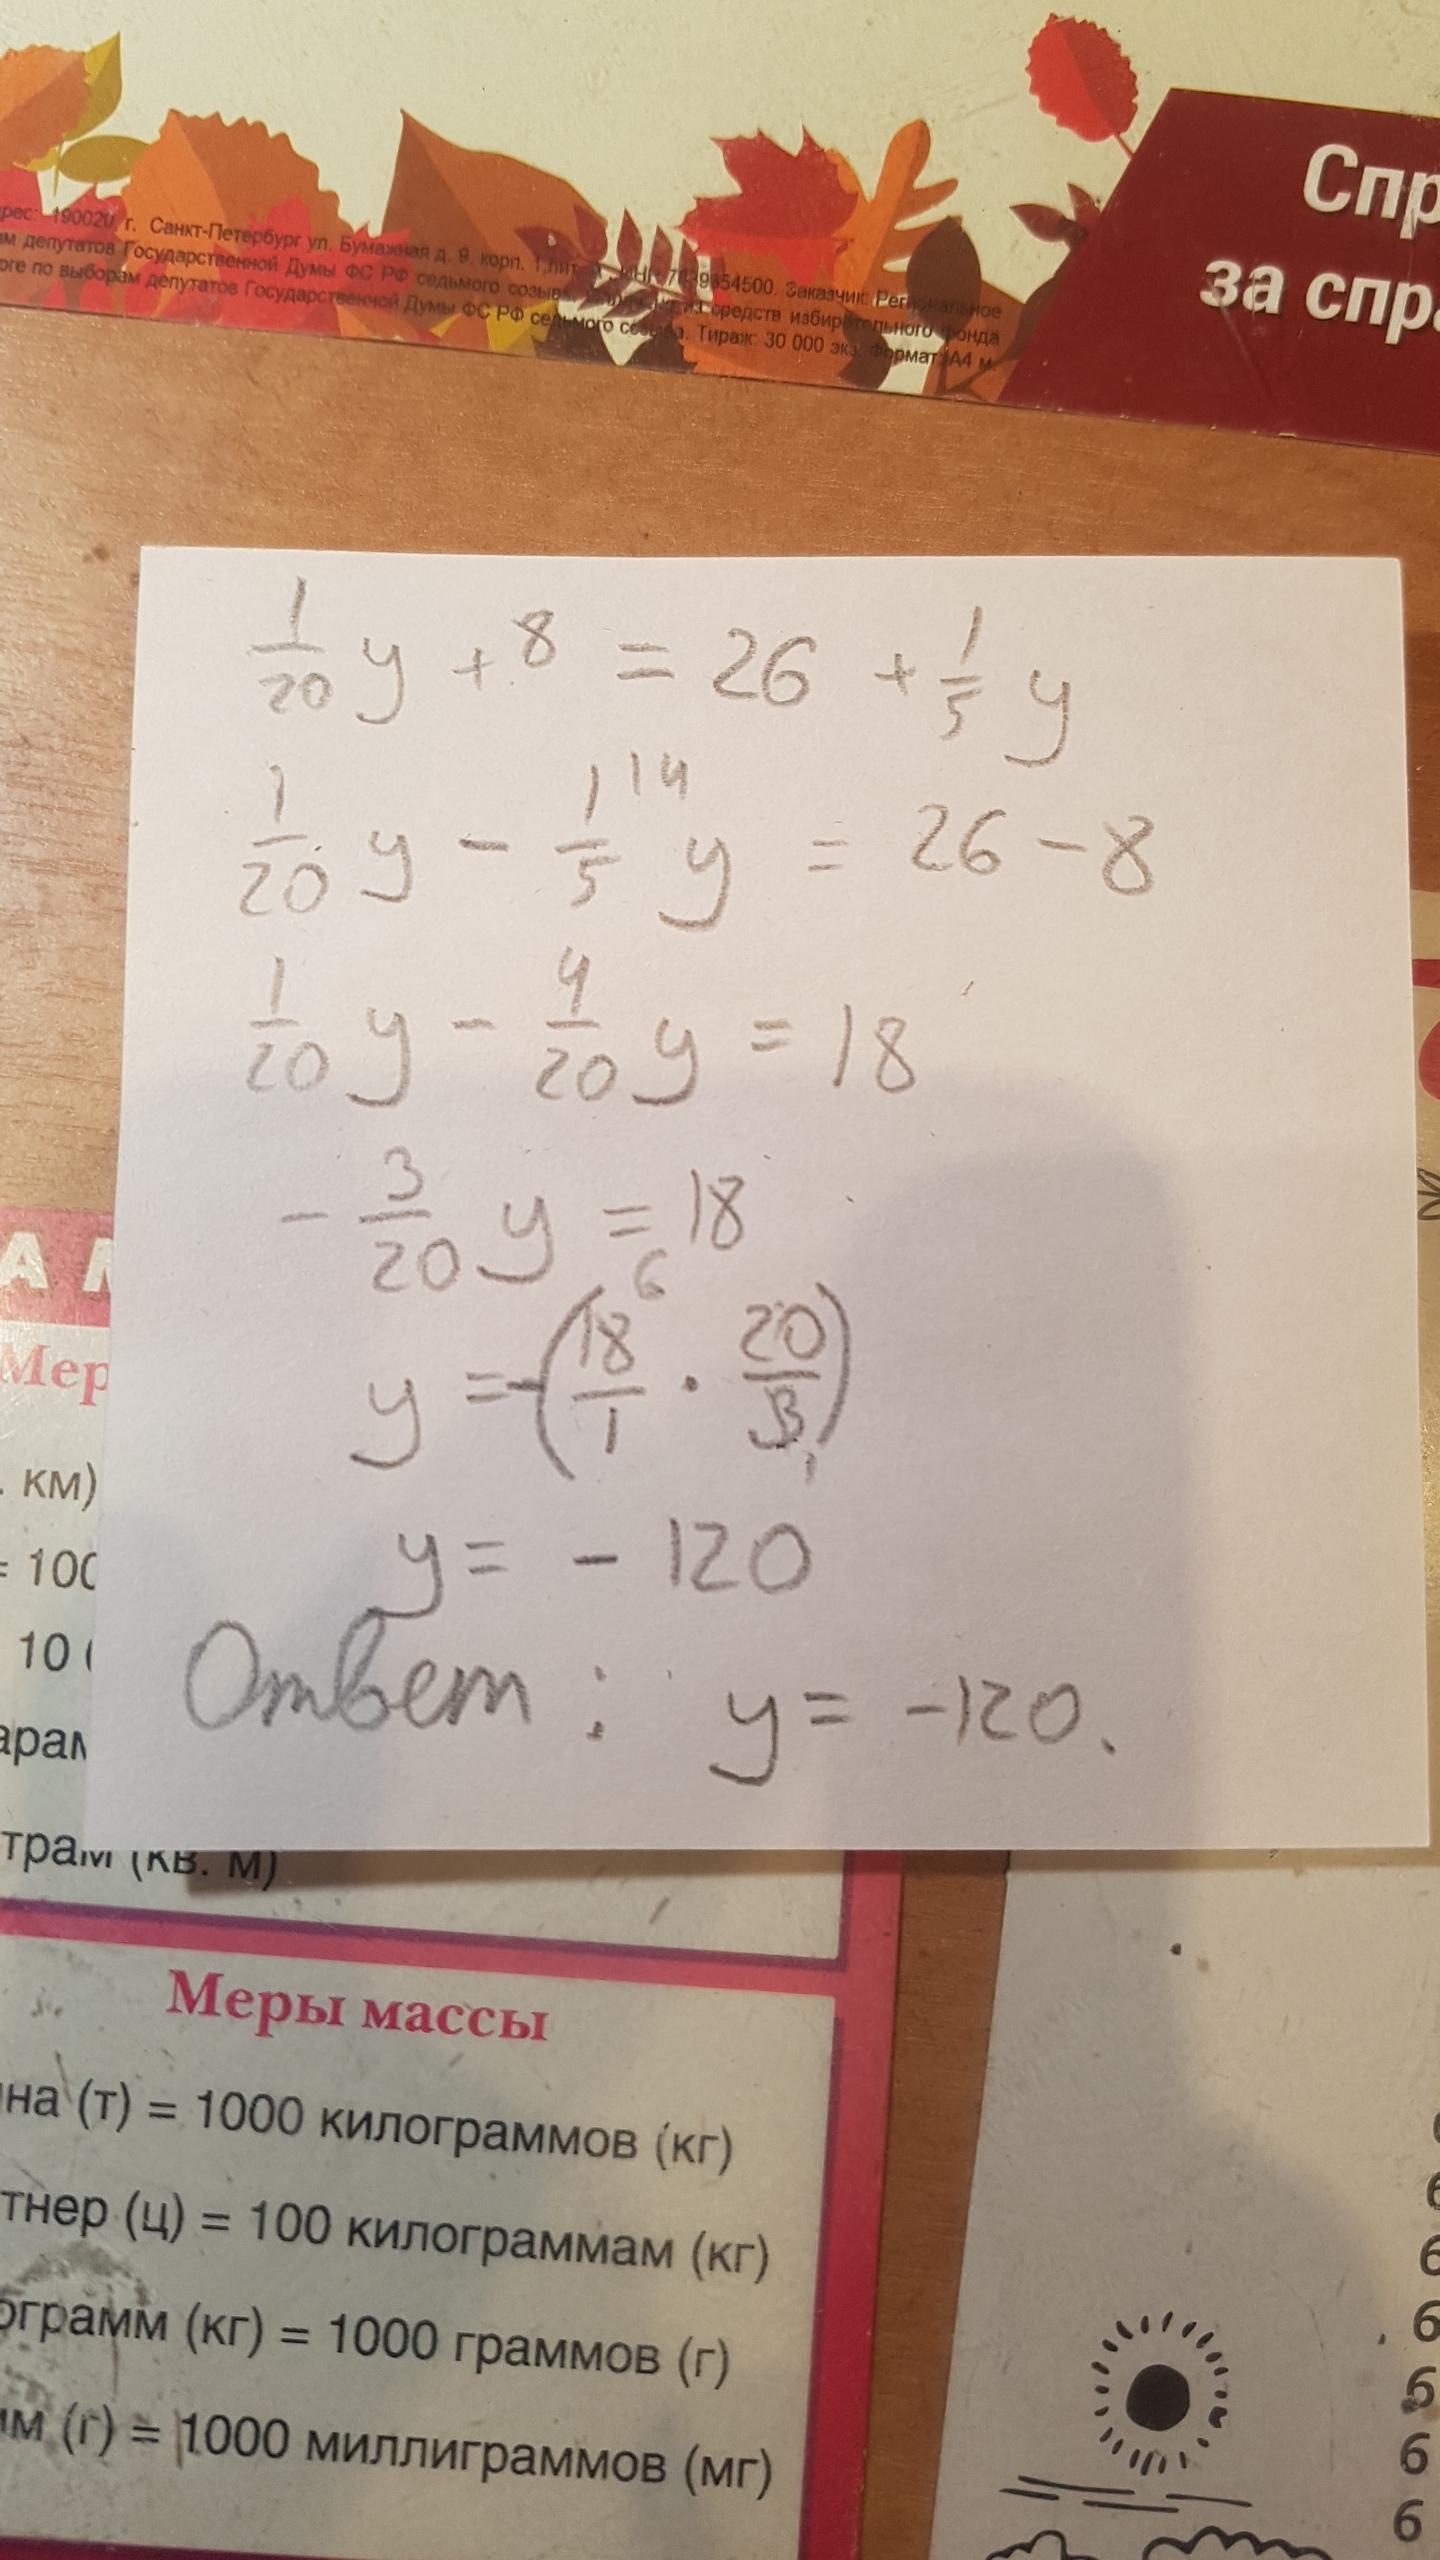 Спр
за спр
рес: 190020, г. Санкт-Петербург ул. Бумажная д. 9, корп. 1, лит
м депутатов Государственной Думы ФС РФ седьмого созыва средств избирательного фонда
оге по выборам депутатов Государственной Думы ФС РФ седьмого созыва. Тираж: 30 000 экз. Формат: А4
Заказчик: Региональное
1/20 y + 8 = 26 + 1/5 y
1/20 y - 1/5 |4 y = 26 - 8
1/20 y - 4/20 y = 18
- 3/20 y = 18
y = -(18/1 6 · 20/3 1)
y = - 120
Ответ : y = -120.
А
Мер
. км)
= 100
10
арам
трам (кв. м)
Меры массы
на (т) = 1000 килограммов (кг)
тнер (ц) = 100 килограммам (кг)
ограмм (кг) = 1000 граммов (г)
мм (г) = 1000 миллиграммов (мг)
6
6
6
6
6
6